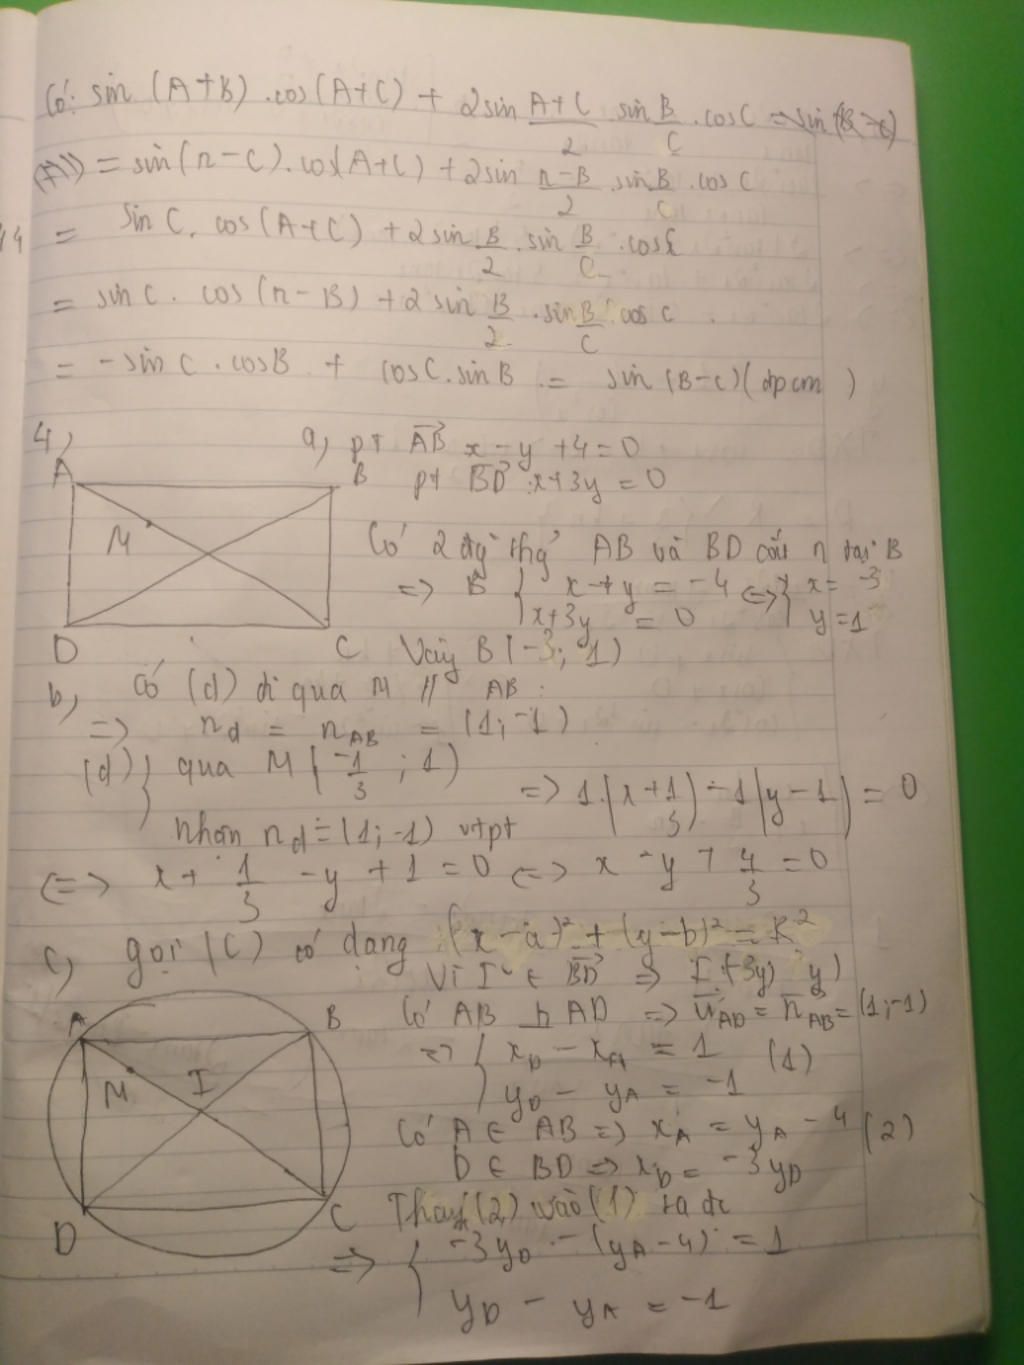 Có: sin (A+B) .cos(A+C) + 2sin A+C/2 sin B/C . cosC = sin (B-C)
VT = sin(π-C). cos(A+C) + 2sin π-B/2 . sin B/C . cos C
= sin C. cos (A+C) + 2 sin B/2 . sin B/C . cos C
= sin C . cos (π-B) + 2 sin B/2 . sin B/C . cos C
= -sin C . cosB + cosC.sin B = sin (B-C) (đpcm)
4,
a, pt AB x - y + 4 = 0
A B pt BD : x+3y = 0
M Có 2 đg thg AB và BD cắt n tại B
=> B { x - y = -4 <=> { x = -3
x+3y = 0 y = 1
D C Vậy B (-3; 1)
b, Có (d) đi qua M // AB :
=> n_d = n_AB = (1; -1)
(d) } qua M ( -1/3 ; 1)
=> 1.(x + 1/3) - 1(y-1) = 0
nhận n_d = (1; -1) vtpt
<=> x + 1/3 - y + 1 = 0 <=> x - y + 4/3 = 0
c, gọi (C) có dạng (x-a)² + (y-b)² = R²
Vì I ∈ BD => I (-3y; y)
A B Có AB ⊥ AD => u_AD = n_AB = (1; -1)
=> { x_D - x_A = 1 (1)
M I y_D - y_A = -1
Có A ∈ AB => x_A = y_A - 4 (2)
D ∈ BD => x_D = -3y_D
D C Thay (2) vào (1) ta đc
=> { -3y_D - (y_A - 4) = 1
y_D - y_A = -1